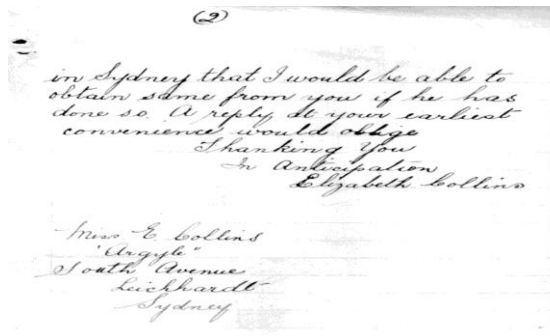 (2)
in Sydney that I would be able to
obtain same from you if he has
done so. A reply at your earliest
convenience would oblige
Thanking You
In Anticipation
Elizabeth Collins
Miss E. Collins
"Argyle"
South Avenue
Leichhardt
Sydney